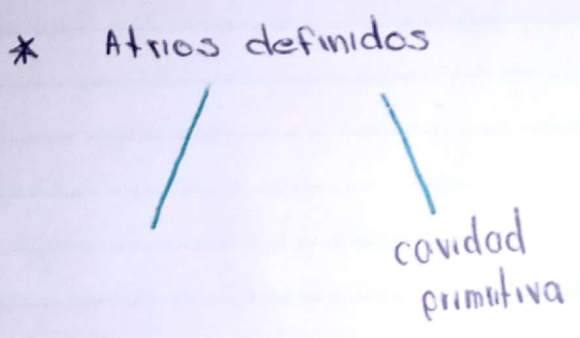 * Atrios definidos
cavidad
primitiva